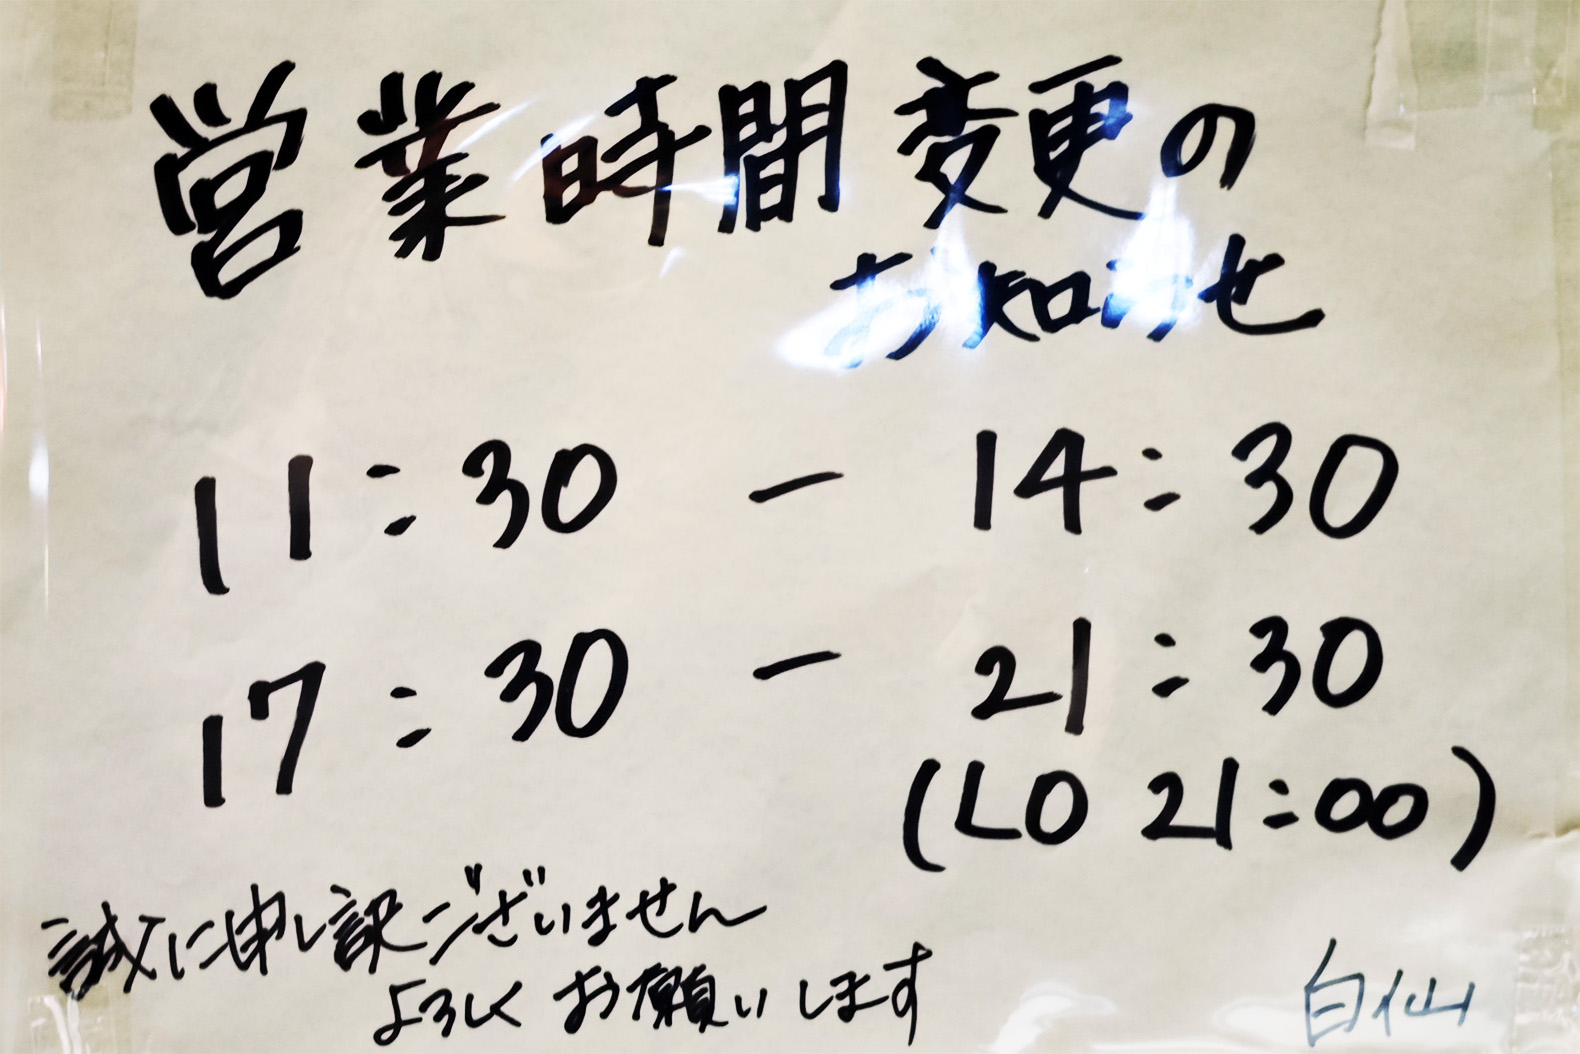 営業時間変更の
お知らせ
11:30 - 14:30
17:30 - 21:30
(LO 21:00)
誠に申し訳ございません
よろしくお願いします
白仙